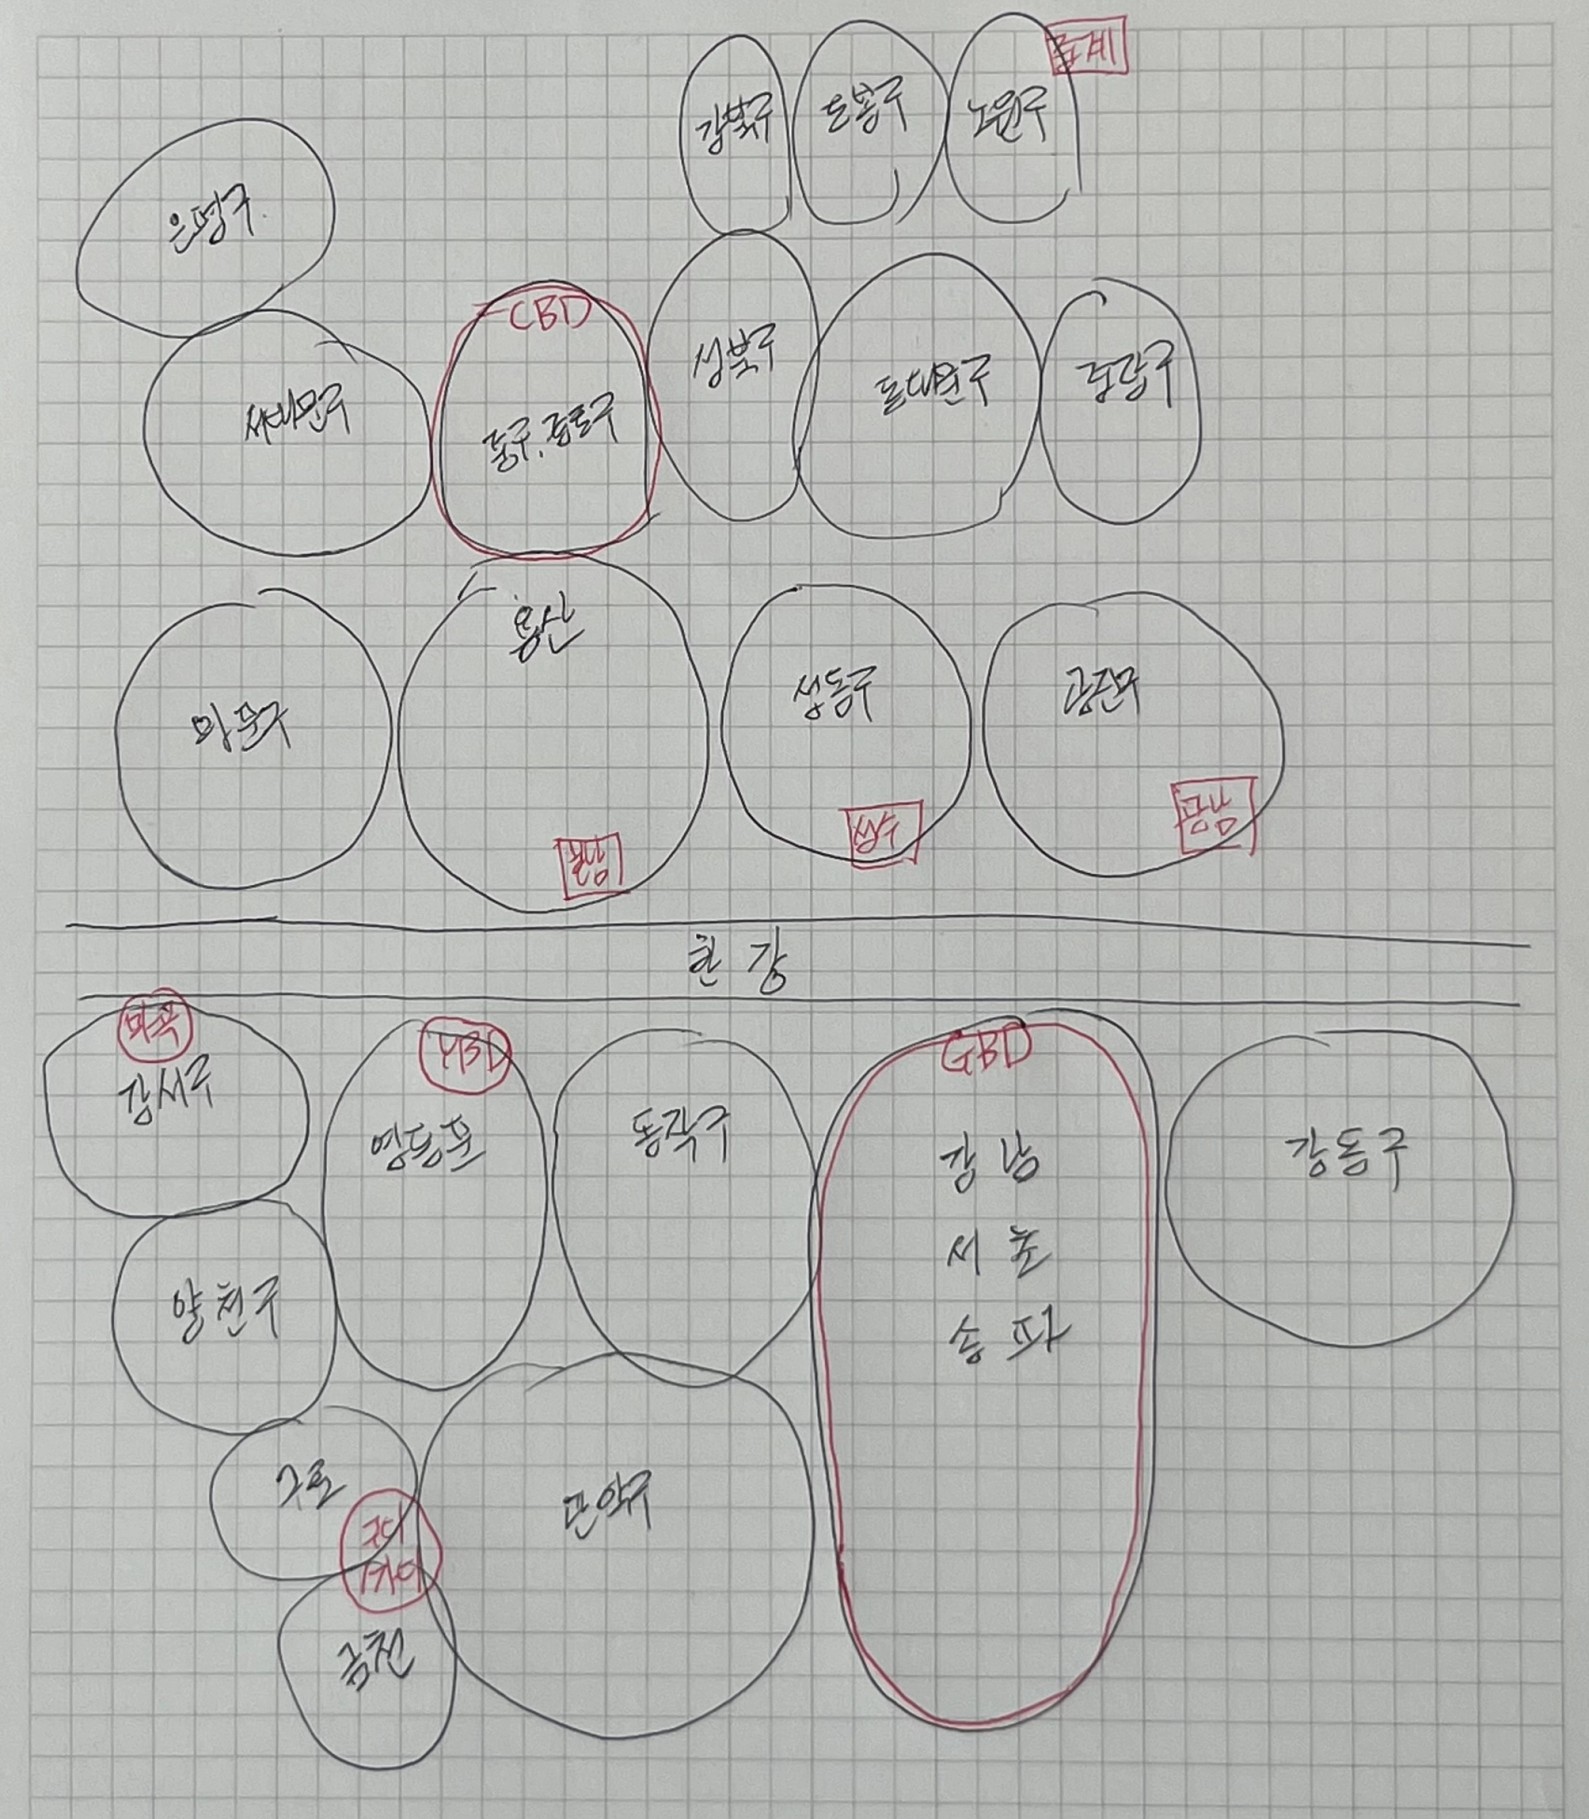 중계
강북구
도봉구
노원구
은평구
CBD
성북구
동대문구
중랑구
서대문구
중구, 종로구
용산
성동구
광진구
마포구
성수
광남
한남
한강
마곡
YBD
GBD
강서구
영등포
동작구
강남
강동구
서초
양천구
송파
구로
관악구
구디
가디
금천